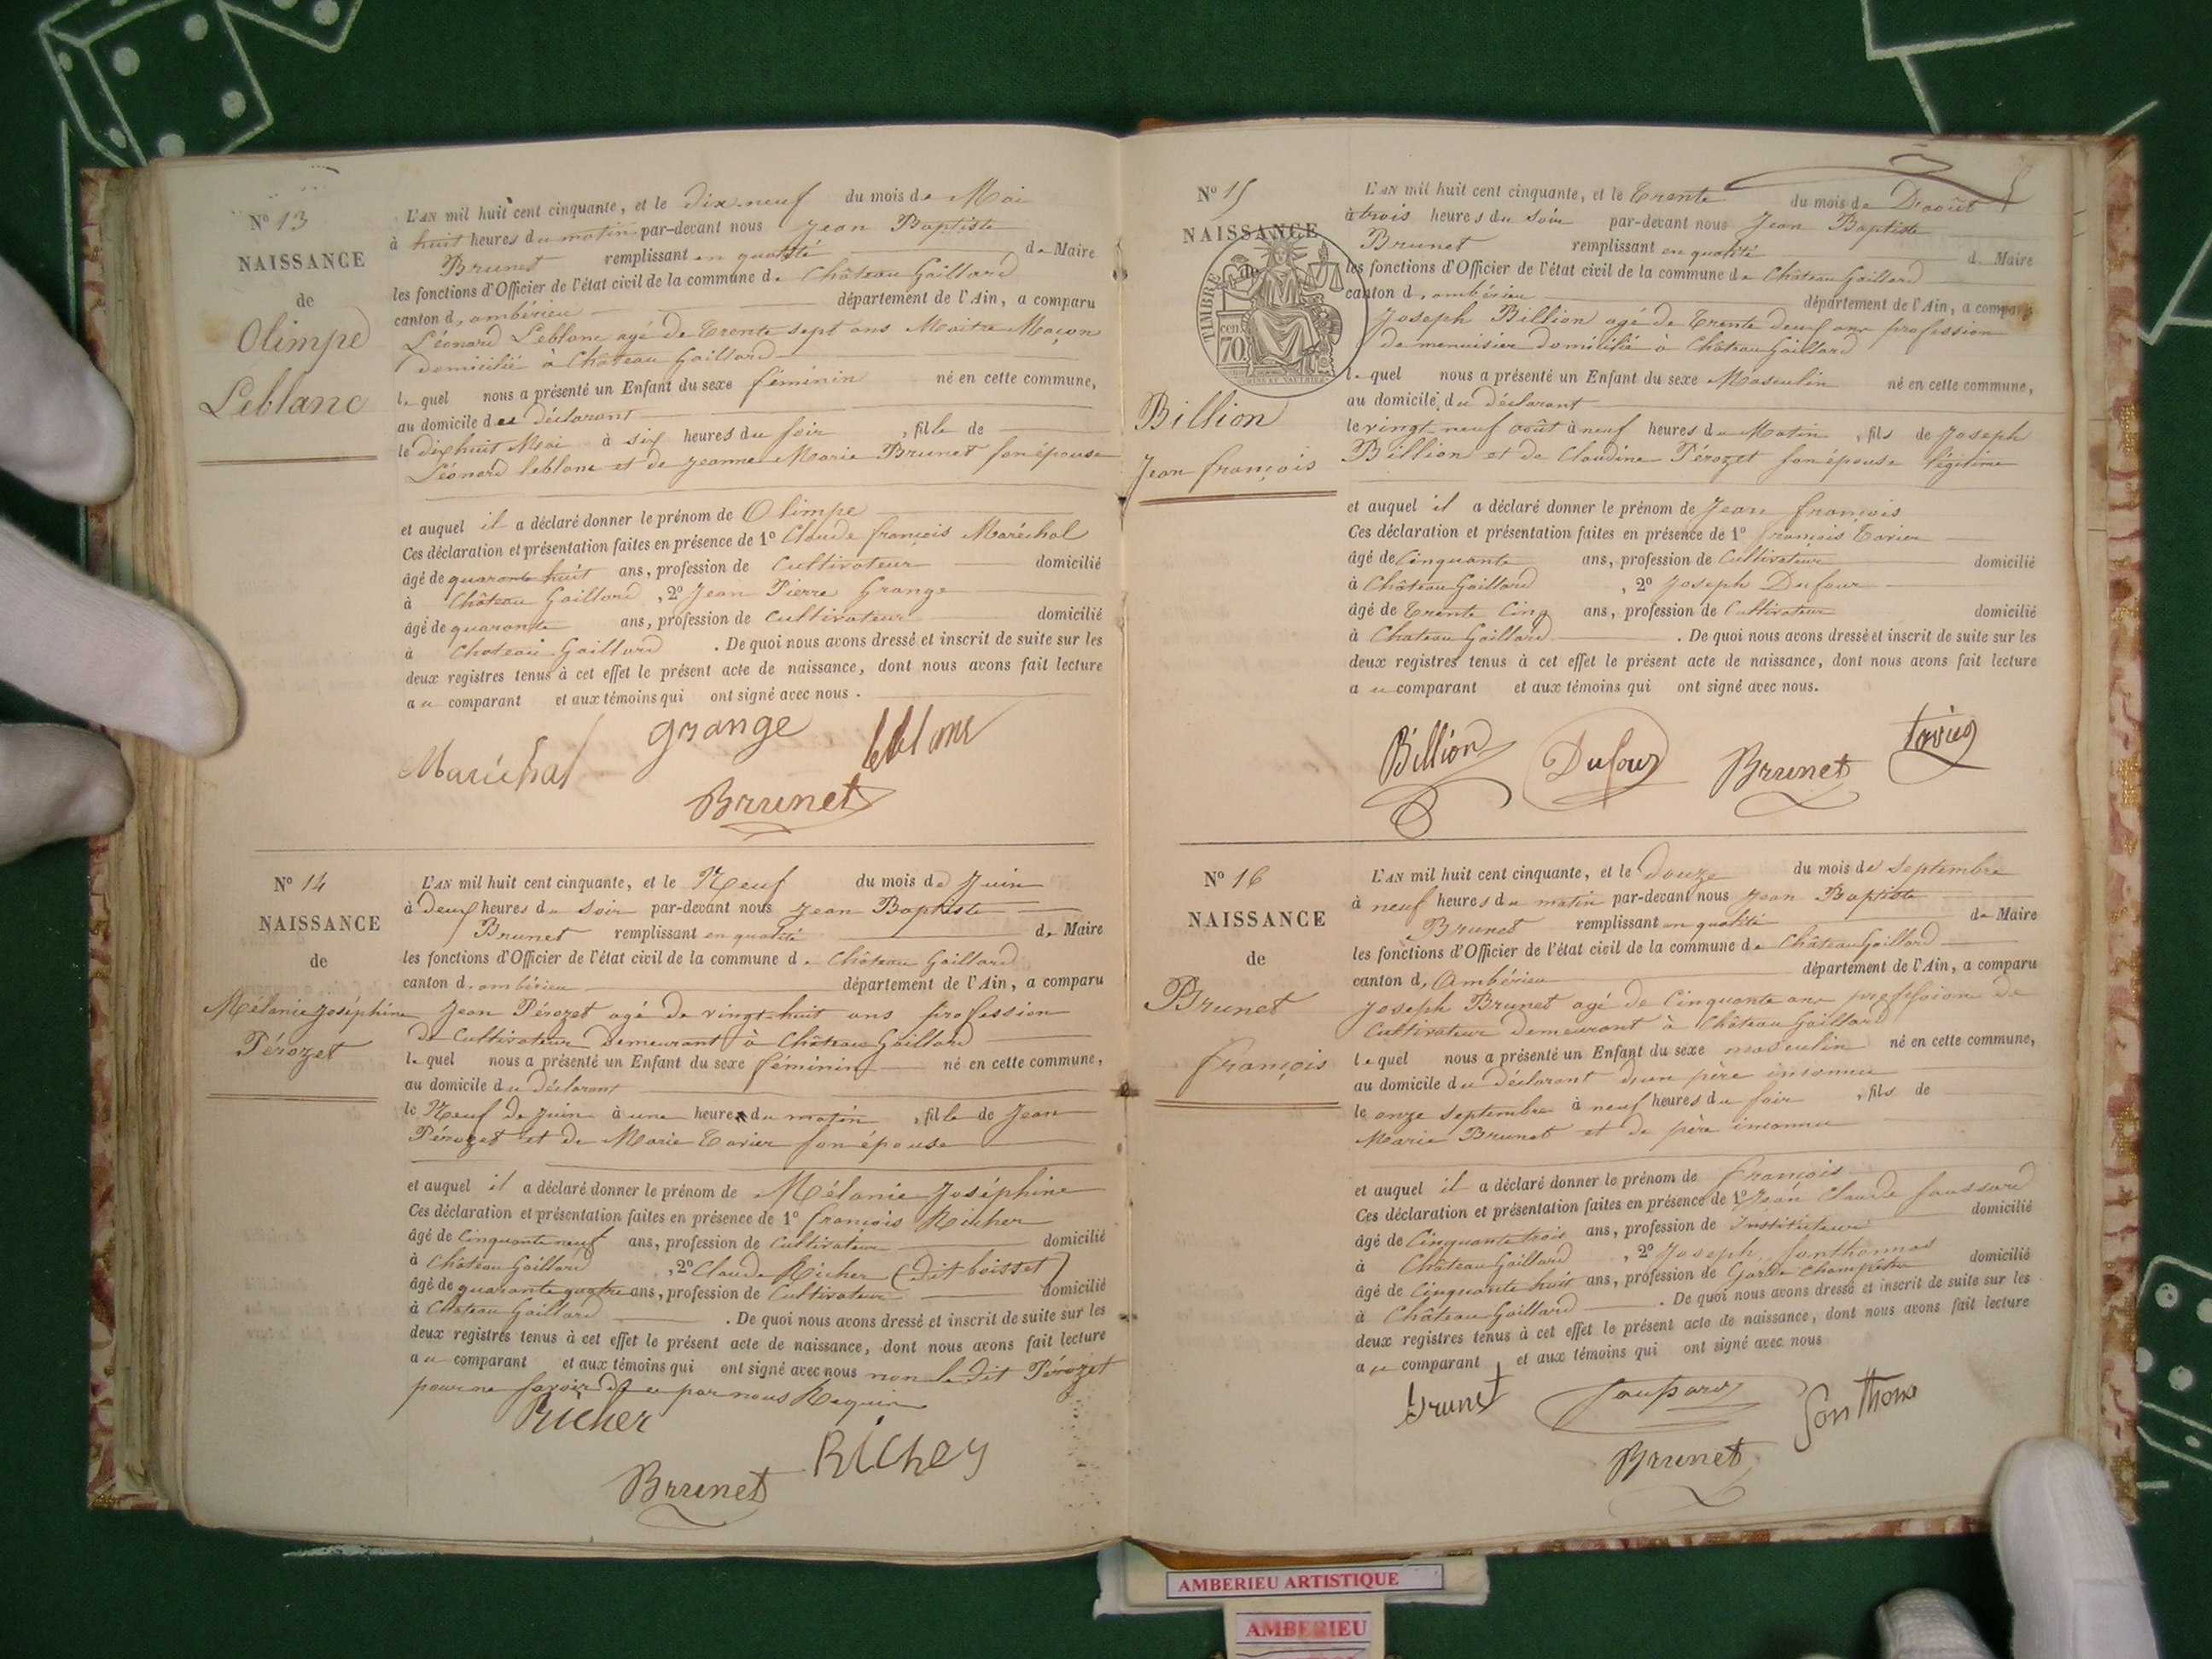 N° 13
NAISSANCE
de
Olimpe
Leblanc
L'AN mil huit cent cinquante, et le dix neuf du mois de Mai
à huit heures du matin par-devant nous Jean Baptiste
Brunet remplissant en qualité de Maire
les fonctions d'Officier de l'état civil de la commune de Château Gaillard
canton d'ambérieu département de l'Ain, a comparu
Léonard Leblanc agé de Trente sept ans Maitre Maçon
domicilié à Château Gaillard
lequel nous a présenté un Enfant du sexe féminin né en cette commune,
au domicile du déclarant
le dix huit Mai à six heures du soir , fille de
Léonard leblanc et de Jeanne Marie Brunet son épouse
et auquel il a déclaré donner le prénom de Olimpe
Ces déclaration et présentation faites en présence de 1° Claude françois Maréchal
âgé de quarante huit ans, profession de Cultivateur domicilié
à Château Gaillard , 2° Jean Pierre Grange
âgé de quarante ans, profession de Cultivateur domicilié
à Chateau Gaillard . De quoi nous avons dressé et inscrit de suite sur les
deux registres tenus à cet effet le présent acte de naissance, dont nous avons fait lecture
au comparant et aux témoins qui ont signé avec nous .
Maréchal grange leblanc
Brunet
N° 14
NAISSANCE
de
Mélanie Joséphine
Pérozet
L'AN mil huit cent cinquante, et le Neuf du mois de Juin
à deux heures du soir par-devant nous Jean Baptiste
Brunet remplissant en qualité de Maire
les fonctions d'Officier de l'état civil de la commune de Château Gaillard
canton d'ambérieu département de l'Ain, a comparu
Jean Pérozet agé de vingt-huit ans profession
de Cultivateur demeurant à Château Gaillard
lequel nous a présenté un Enfant du sexe féminin né en cette commune,
au domicile du déclarant
le Neuf de Juin à une heure du matin , fille de Jean
Pérozet et de Marie Tavier son épouse
et auquel il a déclaré donner le prénom de Mélanie Joséphine
Ces déclaration et présentation faites en présence de 1° françois Richer
âgé de Cinquante neuf ans, profession de Cultivateur domicilié
à Château Gaillard , 2° Claude Richer (dit boisset)
âgé de quarante quatre ans, profession de Cultivateur domicilié
à Château Gaillard . De quoi nous avons dressé et inscrit de suite sur les
deux registres tenus à cet effet le présent acte de naissance, dont nous avons fait lecture
au comparant et aux témoins qui ont signé avec nous non le dit Pérozet
pour ne savoir de ce par nous Requis
Richer
Brunet Richer
N° 15
NAISSANCE
de
TIMBRE
70 cent
Billion
Jean françois
L'AN mil huit cent cinquante, et le Trente du mois de Daoût
à trois heures du soir par-devant nous Jean Baptiste
Brunet remplissant en qualité de Maire
les fonctions d'Officier de l'état civil de la commune de Château Gaillard
canton d'ambérieu département de l'Ain, a comparu
Joseph Billion agé de Trente deux ans profession
de menuisier domicilié à Château Gaillard
lequel nous a présenté un Enfant du sexe Masculin né en cette commune,
au domicile du déclarant
le vingt neuf août à neuf heures du Matin , fils de Joseph
Billion et de Claudine Pérozet son épouse légitime
et auquel il a déclaré donner le prénom de Jean françois
Ces déclaration et présentation faites en présence de 1° françois Tavier
âgé de Cinquante ans, profession de Cultivateur domicilié
à Château Gaillard , 2° Joseph Dufour
âgé de Trente Cinq ans, profession de Cultivateur domicilié
à Chateau Gaillard . De quoi nous avons dressé et inscrit de suite sur les
deux registres tenus à cet effet le présent acte de naissance, dont nous avons fait lecture
au comparant et aux témoins qui ont signé avec nous.
Billion Dufour Brunet
N° 16
NAISSANCE
de
Brunet
françois
L'AN mil huit cent cinquante, et le douze du mois de Septembre
à neuf heures du matin par-devant nous Jean Baptiste
Brunet remplissant en qualité de Maire
les fonctions d'Officier de l'état civil de la commune de Château Gaillard
canton d'Ambérieu département de l'Ain, a comparu
Joseph Brunet agé de Cinquante ans profession de
Cultivateur demeurant à Château Gaillard
lequel nous a présenté un Enfant du sexe masculin né en cette commune,
au domicile du déclarant d'un père inconnu
le onze septembre à neuf heures du soir , fils de
Marie Brunet et de père inconnu
et auquel il a déclaré donner le prénom de françois
Ces déclaration et présentation faites en présence de 1° Jean Claude
âgé de Cinquante trois ans, profession de Instituteur domicilié
à Château Gaillard , 2° Joseph Janthomas
âgé de Cinquante huit ans, profession de Garde Champêtre domicilié
à Château Gaillard . De quoi nous avons dressé et inscrit de suite sur les
deux registres tenus à cet effet le présent acte de naissance, dont nous avons fait lecture
au comparant et aux témoins qui ont signé avec nous
brunet
Brunet
AMBERIEU ARTISTIQUE
AMBERIEU